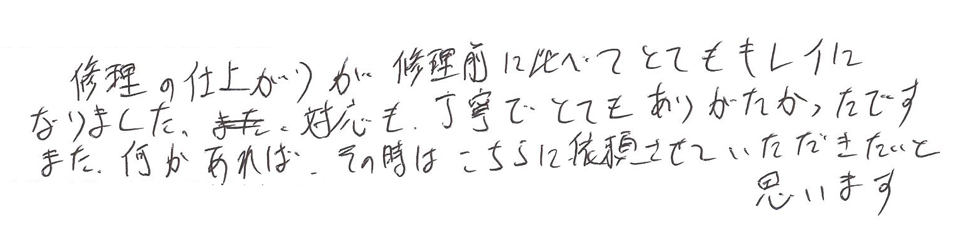 修理の仕上がりが修理前に比べてとてもキレイに
なりました、また、対応も、丁寧でとてもありがたかったです
また、何かあれば、その時はこちらに依頼させていただきたいと
思います